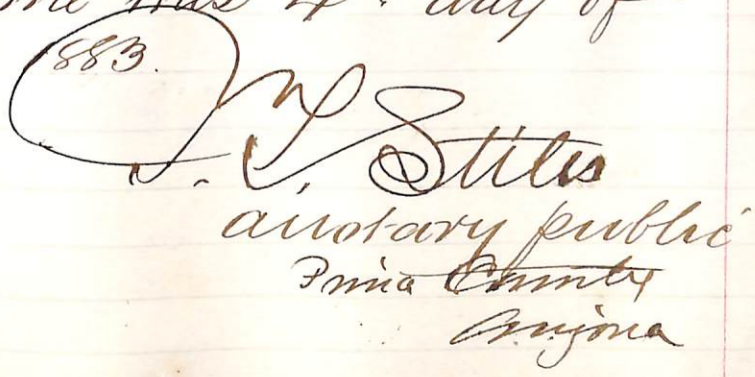 me this 4th day of
1883.
J. T. Stiles
a notary public
Pima County
Arizona